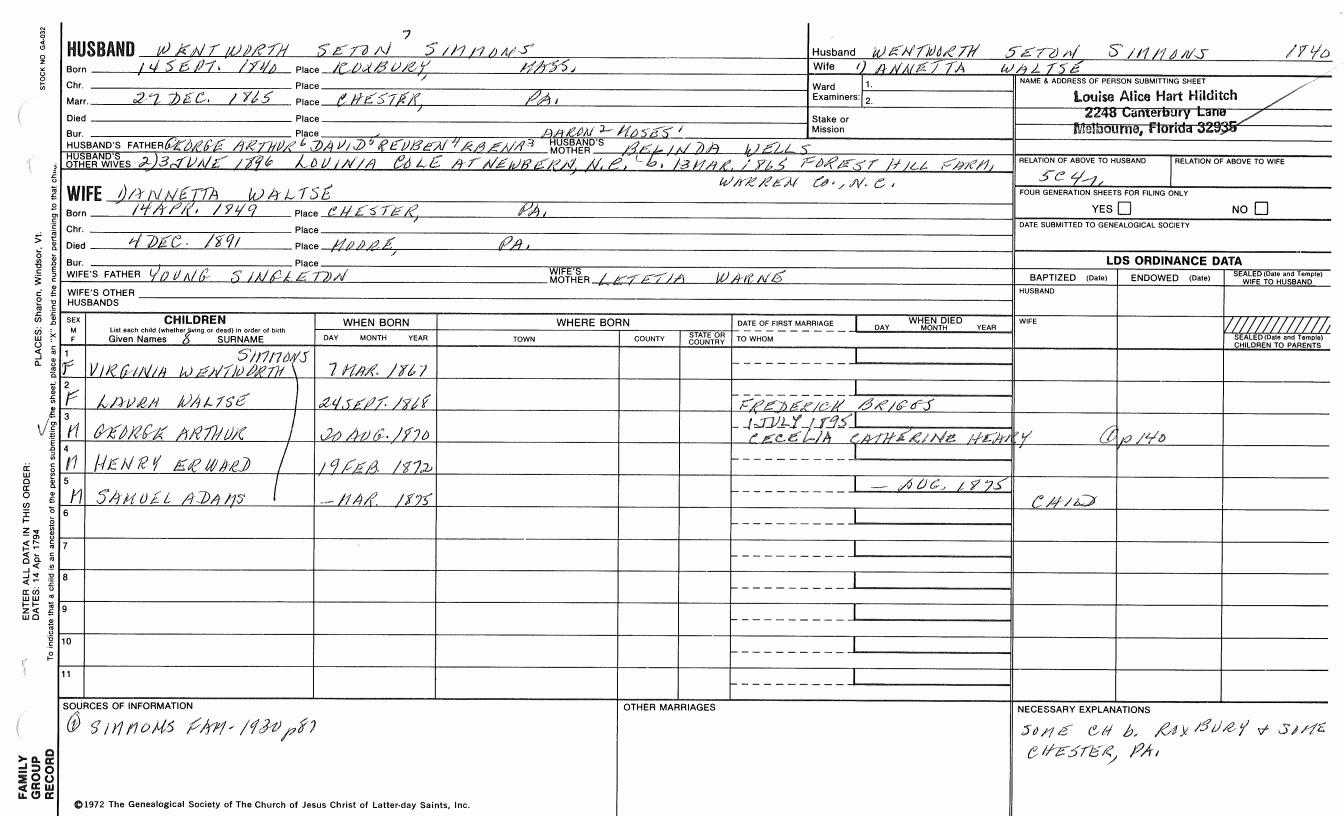 STOCK NO GA-032
PLACES: Sharon, Windsor, Vt.
ENTER ALL DATA IN THIS ORDER:
DATES: 14 Apr 1794
To indicate that a child is an ancestor of the person submitting the sheet, place an "X" behind the number pertaining to that
FAMILY GROUP RECORD
7
HUSBAND WENTWORTH SETON SIMMONS
Born 14 SEPT. 1840 Place ROXBURY, MASS.
Chr. Place
Marr. 27 DEC. 1865 Place CHESTER, PA.
Died Place
Bur. Place
AARON 2 MOSES 1
HUSBAND'S FATHER GEORGE ARTHUR 6 DAVID 5 REUBEN 4 EBENA 3 HUSBAND'S MOTHER BELINDA WELLS
HUSBAND'S OTHER WIVES 2) 3 JUNE 1896 LOUINIA COLE AT NEWBERN, N.C. b. 13 MAR. 1865 FOREST HILL FARM,
WARREN CO., N.C.
WIFE 1) ANNETTA WALTSE
Born 14 APR. 1849 Place CHESTER, PA.
Chr. Place
Died 4 DEC. 1891 Place MOORE, PA.
Bur. Place
WIFE'S FATHER YOUNG SINGLETON WIFE'S MOTHER LETETIA WARNE
WIFE'S OTHER HUSBANDS
Husband WENTWORTH SETON SIMMONS 1840
Wife 1) ANNETTA WALTSE
Ward Examiners: 1.
2.
Stake or Mission
NAME & ADDRESS OF PERSON SUBMITTING SHEET
Louise Alice Hart Hilditch
2248 Canterbury Lane
Melbourne, Florida 32935
RELATION OF ABOVE TO HUSBAND RELATION OF ABOVE TO WIFE
5C4r.
FOUR GENERATION SHEETS FOR FILING ONLY
YES NO
DATE SUBMITTED TO GENEALOGICAL SOCIETY
LDS ORDINANCE DATA
BAPTIZED (Date) ENDOWED (Date) SEALED (Date and Temple) WIFE TO HUSBAND
HUSBAND
WIFE
SEALED (Date and Temple) CHILDREN TO PARENTS
SEX M F
CHILDREN
List each child (whether living or dead) in order of birth
Given Names 8 SURNAME
WHEN BORN
DAY MONTH YEAR
WHERE BORN
TOWN COUNTY STATE OR COUNTRY
DATE OF FIRST MARRIAGE
TO WHOM
WHEN DIED
DAY MONTH YEAR
SIMMONS
1 F VIRGINIA WENTWORTH 7 MAR. 1867
2 F LAURA WALTSE 24 SEPT. 1868 FREDERICK BRIGGS
1 JULY 1895
3 M GEORGE ARTHUR 20 AUG. 1870 CECELIA CATHERINE HEARY 1 p140
4 M HENRY ERWARD 19 FEB. 1872
— AUG. 1875
5 M SAMUEL ADAMS — MAR. 1875 CHILD
6
7
8
9
10
11
SOURCES OF INFORMATION
1 SIMMONS FAM-1930 p87
OTHER MARRIAGES
NECESSARY EXPLANATIONS
SOME CH b. ROXBURY + SOME
CHESTER, PA.
©1972 The Genealogical Society of The Church of Jesus Christ of Latter-day Saints, Inc.